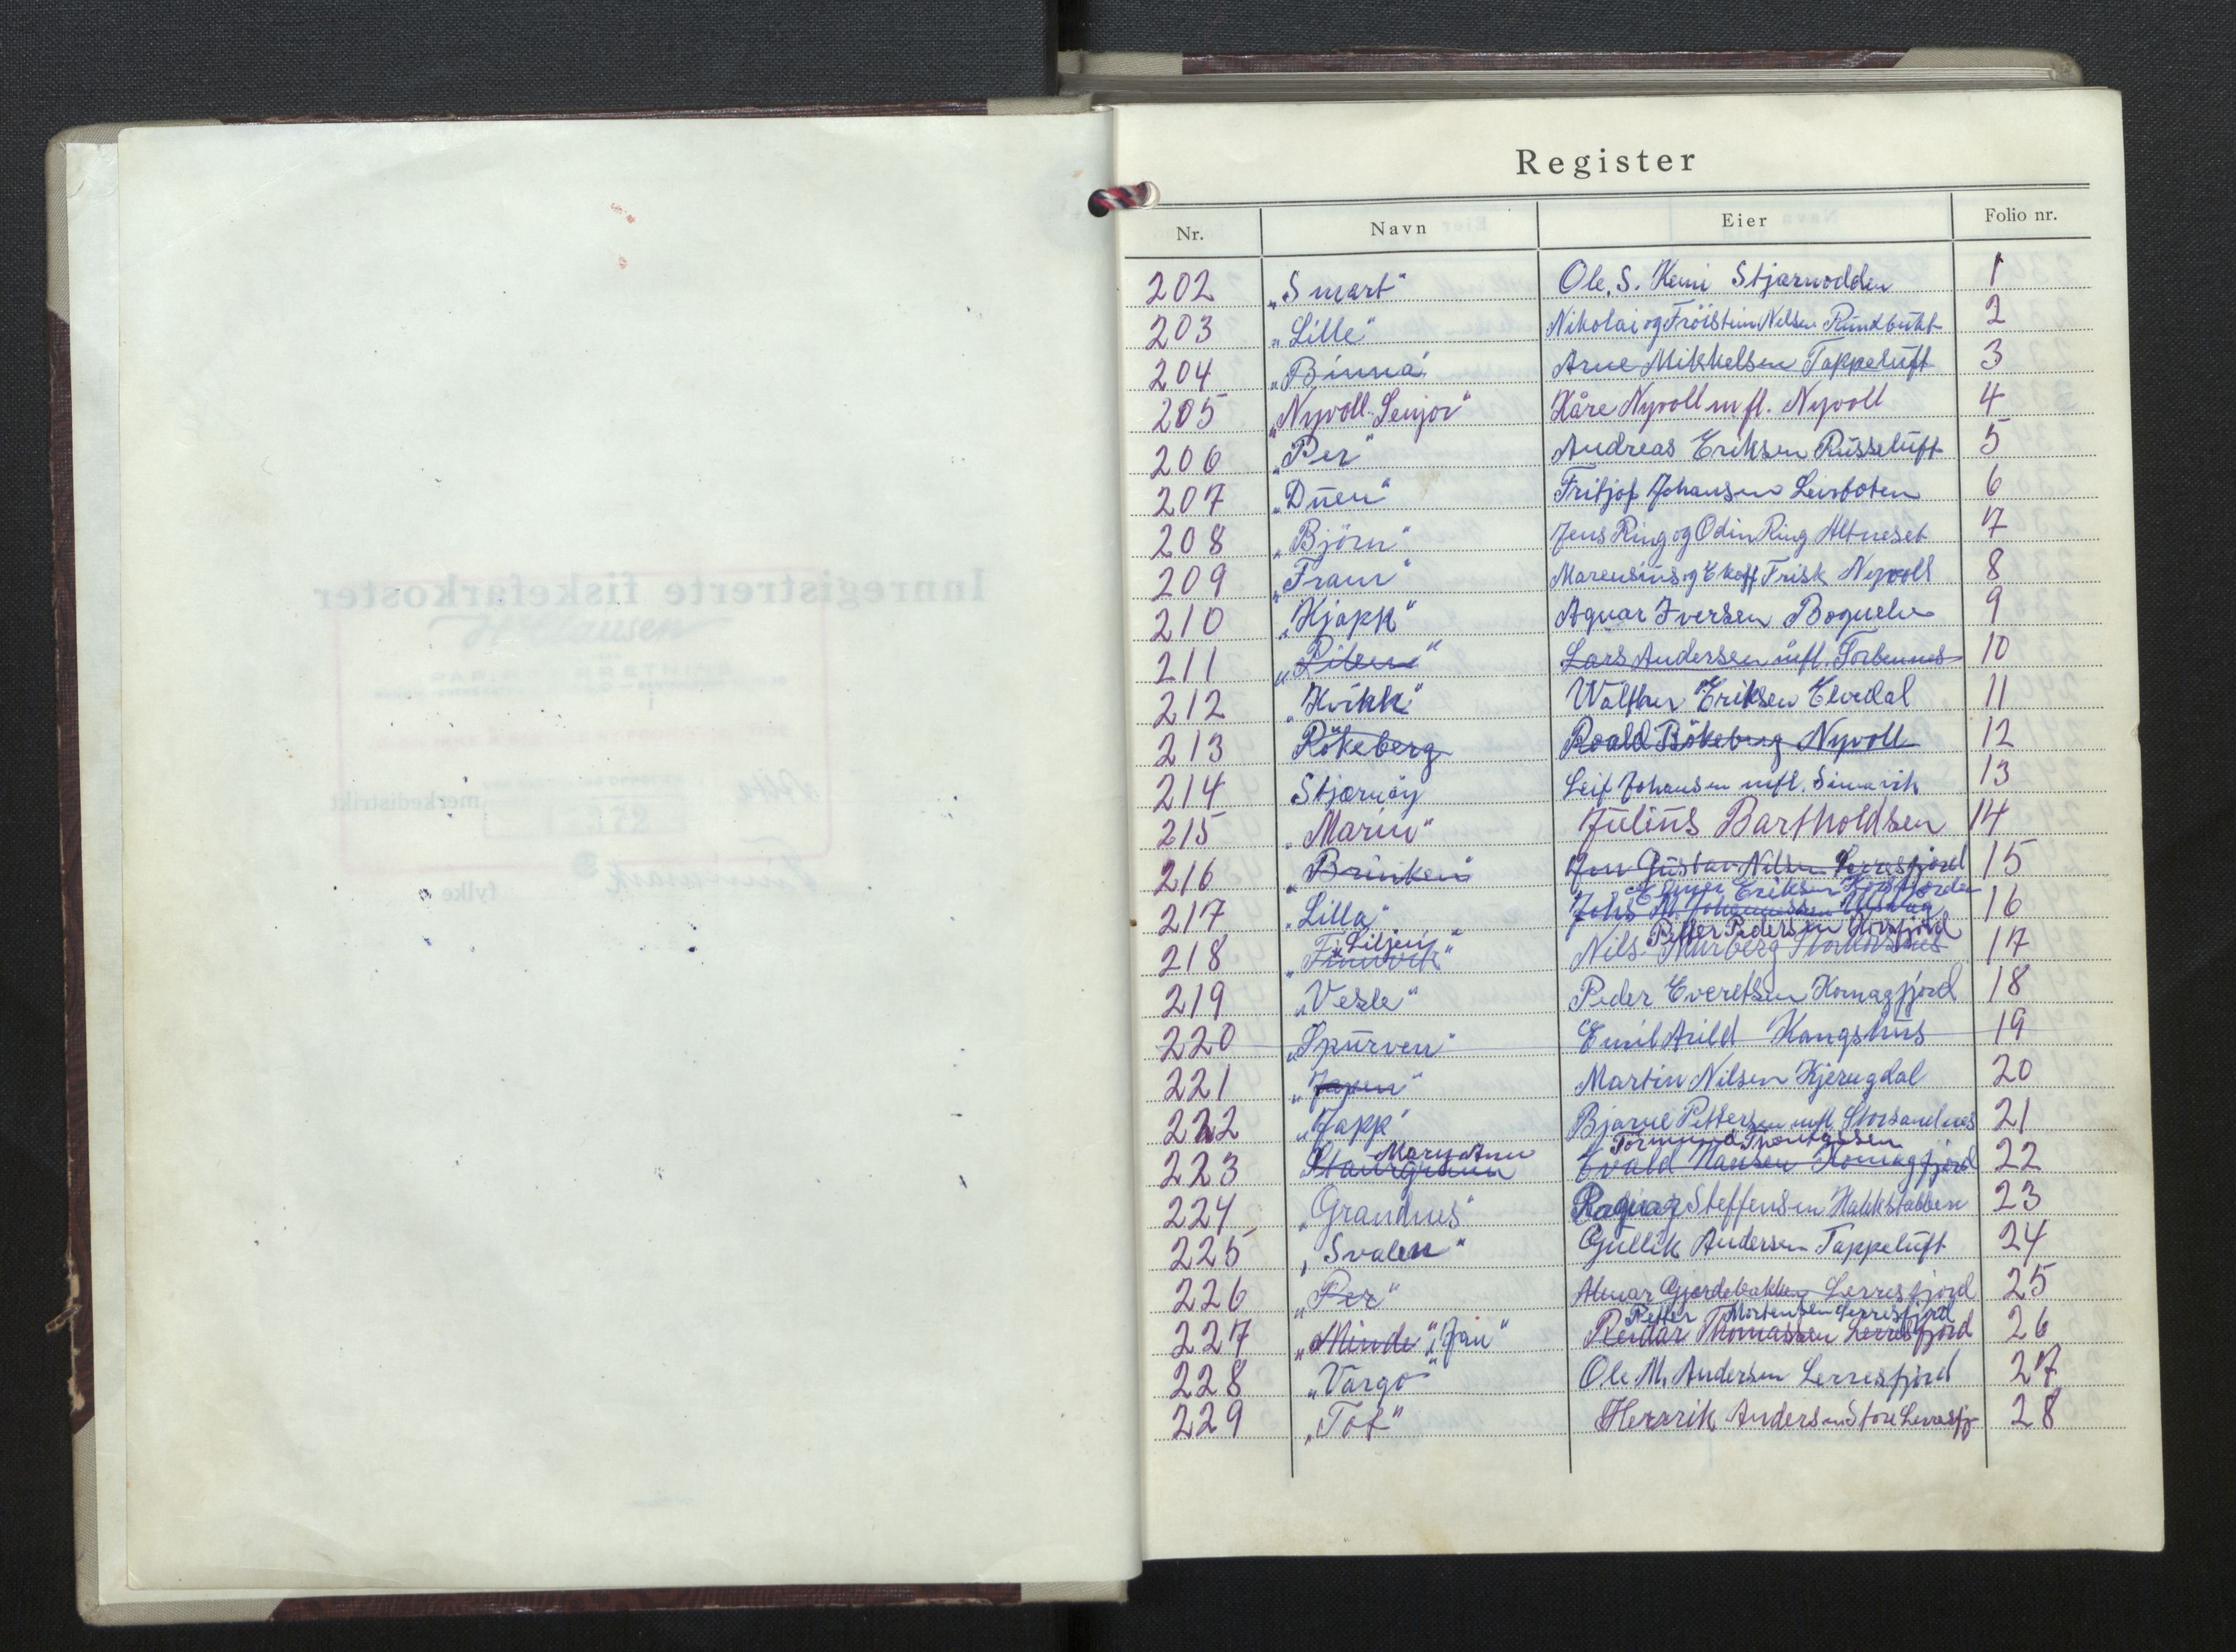 Register
Nr. Navn Eier Folio nr.
202 „Smart" Ole. S. Kemi Stjernodden 1
203 „Lille" Nikolai og Fröistein Nilsen Rundbukt 2
204 „Binna" Arne Mikkelsen Tappeluft 3
205 „Nyvoll Senjor" Kåre Nyvoll m fl. Nyvoll 4
206 „Per" Andreas Eriksen Russeluft 5
207 „Duen" Fritjof Johansen Leirboten 6
208 „Björn" Jens Ring og Odin Ring Altneset 7
209 „Fram" Marensius og Ekoff Frisk Nyvoll 8
210 „Kjapp" Agnar Iversen Bognelv 9
211 „Pilen" Lars Andersen mfl. 10
212 „Kvikk" Walther Eriksen Elvedal 11
213 Rökeberg Roald Bökeberg Nyvoll 12
214 Stjernöy Leif Johansen mfl. Simavik 13
215 „Marin" Julius Bartholdsen 14
216 „Brinken" Jon Gustav Nilsen Lerresfjord 15
Elmer Eriksen
217 „Lilla" Johs M. Johannessen 16
„Liljen" Petter Pedersen Korsfjord
218 „Finnvik" Nils Murberg 17
219 „Vesle" Peder Evertsen Komagfjord 18
220 „Spurven" Emil Arild Kongshus 19
221 „Japen" Martin Nilsen Kjerugdal 20
222 „Japp" Bjarne Pettersen mfl. Storsandnes 21
Mary Ann Tormund Thomassen
223 Evald Hansen Komagfjord 22
224 „Grandnes" Ragnar Steffensen Hakkstabben 23
225 „Svalen" Gullik Andersen Tappeluft 24
226 „Per" Almar Gjerdebakken Lerresfjord 25
Petter Mortensen Lerresfjord
227 „Minde" „Jan" Reidar Thomassen Lerresfjord 26
228 „Vargo" Ole M. Andersen Lerresfjord 27
229 „Tot" Henrik Andersen Store Lerresfj 28